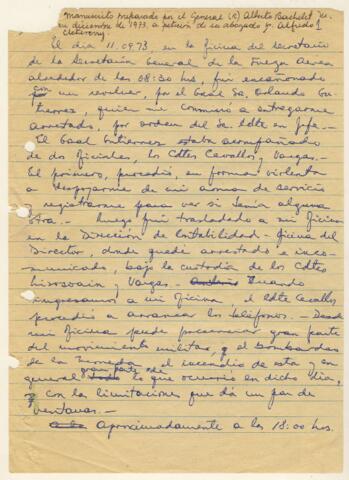 Manuscrito preparado por el General (R) Alberto Bachelet
en diciembre de 1973, a petición de su abogado Sr. Alfredo
Etcheberry.
El día 11.09.73, en la oficina del Secretario
de la Secretaría General de la Fuerza Aerea
alrededor de las 08:30 hrs, fui encañonado
con un revolver, por el Gral Sr. Orlando Gu-
tierrez, quien me conminó a entregarme
arrestado, por orden del Sr. Cdte en Jefe.
El Gral Gutierrez estaba acompañado
de dos oficiales, los Cdtes Cevallos y Vargas.
El primero, procedió en forma violenta
a despojarme de mi arma de servicio
y registrarme para ver si tenía alguna
otra. — Luego fui trasladado a mi oficina
en la Dirección de Contabilidad - Oficina del
Director, donde quedé arrestado e inco-
municado, bajo la custodia de los Cdtes
y Vargas. — Cuando
ingresamos a mi oficina, el Cdte Cevallos
procedió a arrancar los teléfonos. — Desde
mi oficina pude presenciar gran parte
del movimiento militar, y el bombardeo
de la Moneda, el incendio de esta, y en
general gran parte de lo que ocurrió en dicho día,
con las limitaciones que dá un par de
ventanas. —
Aproximadamente a las 18:00 hrs.